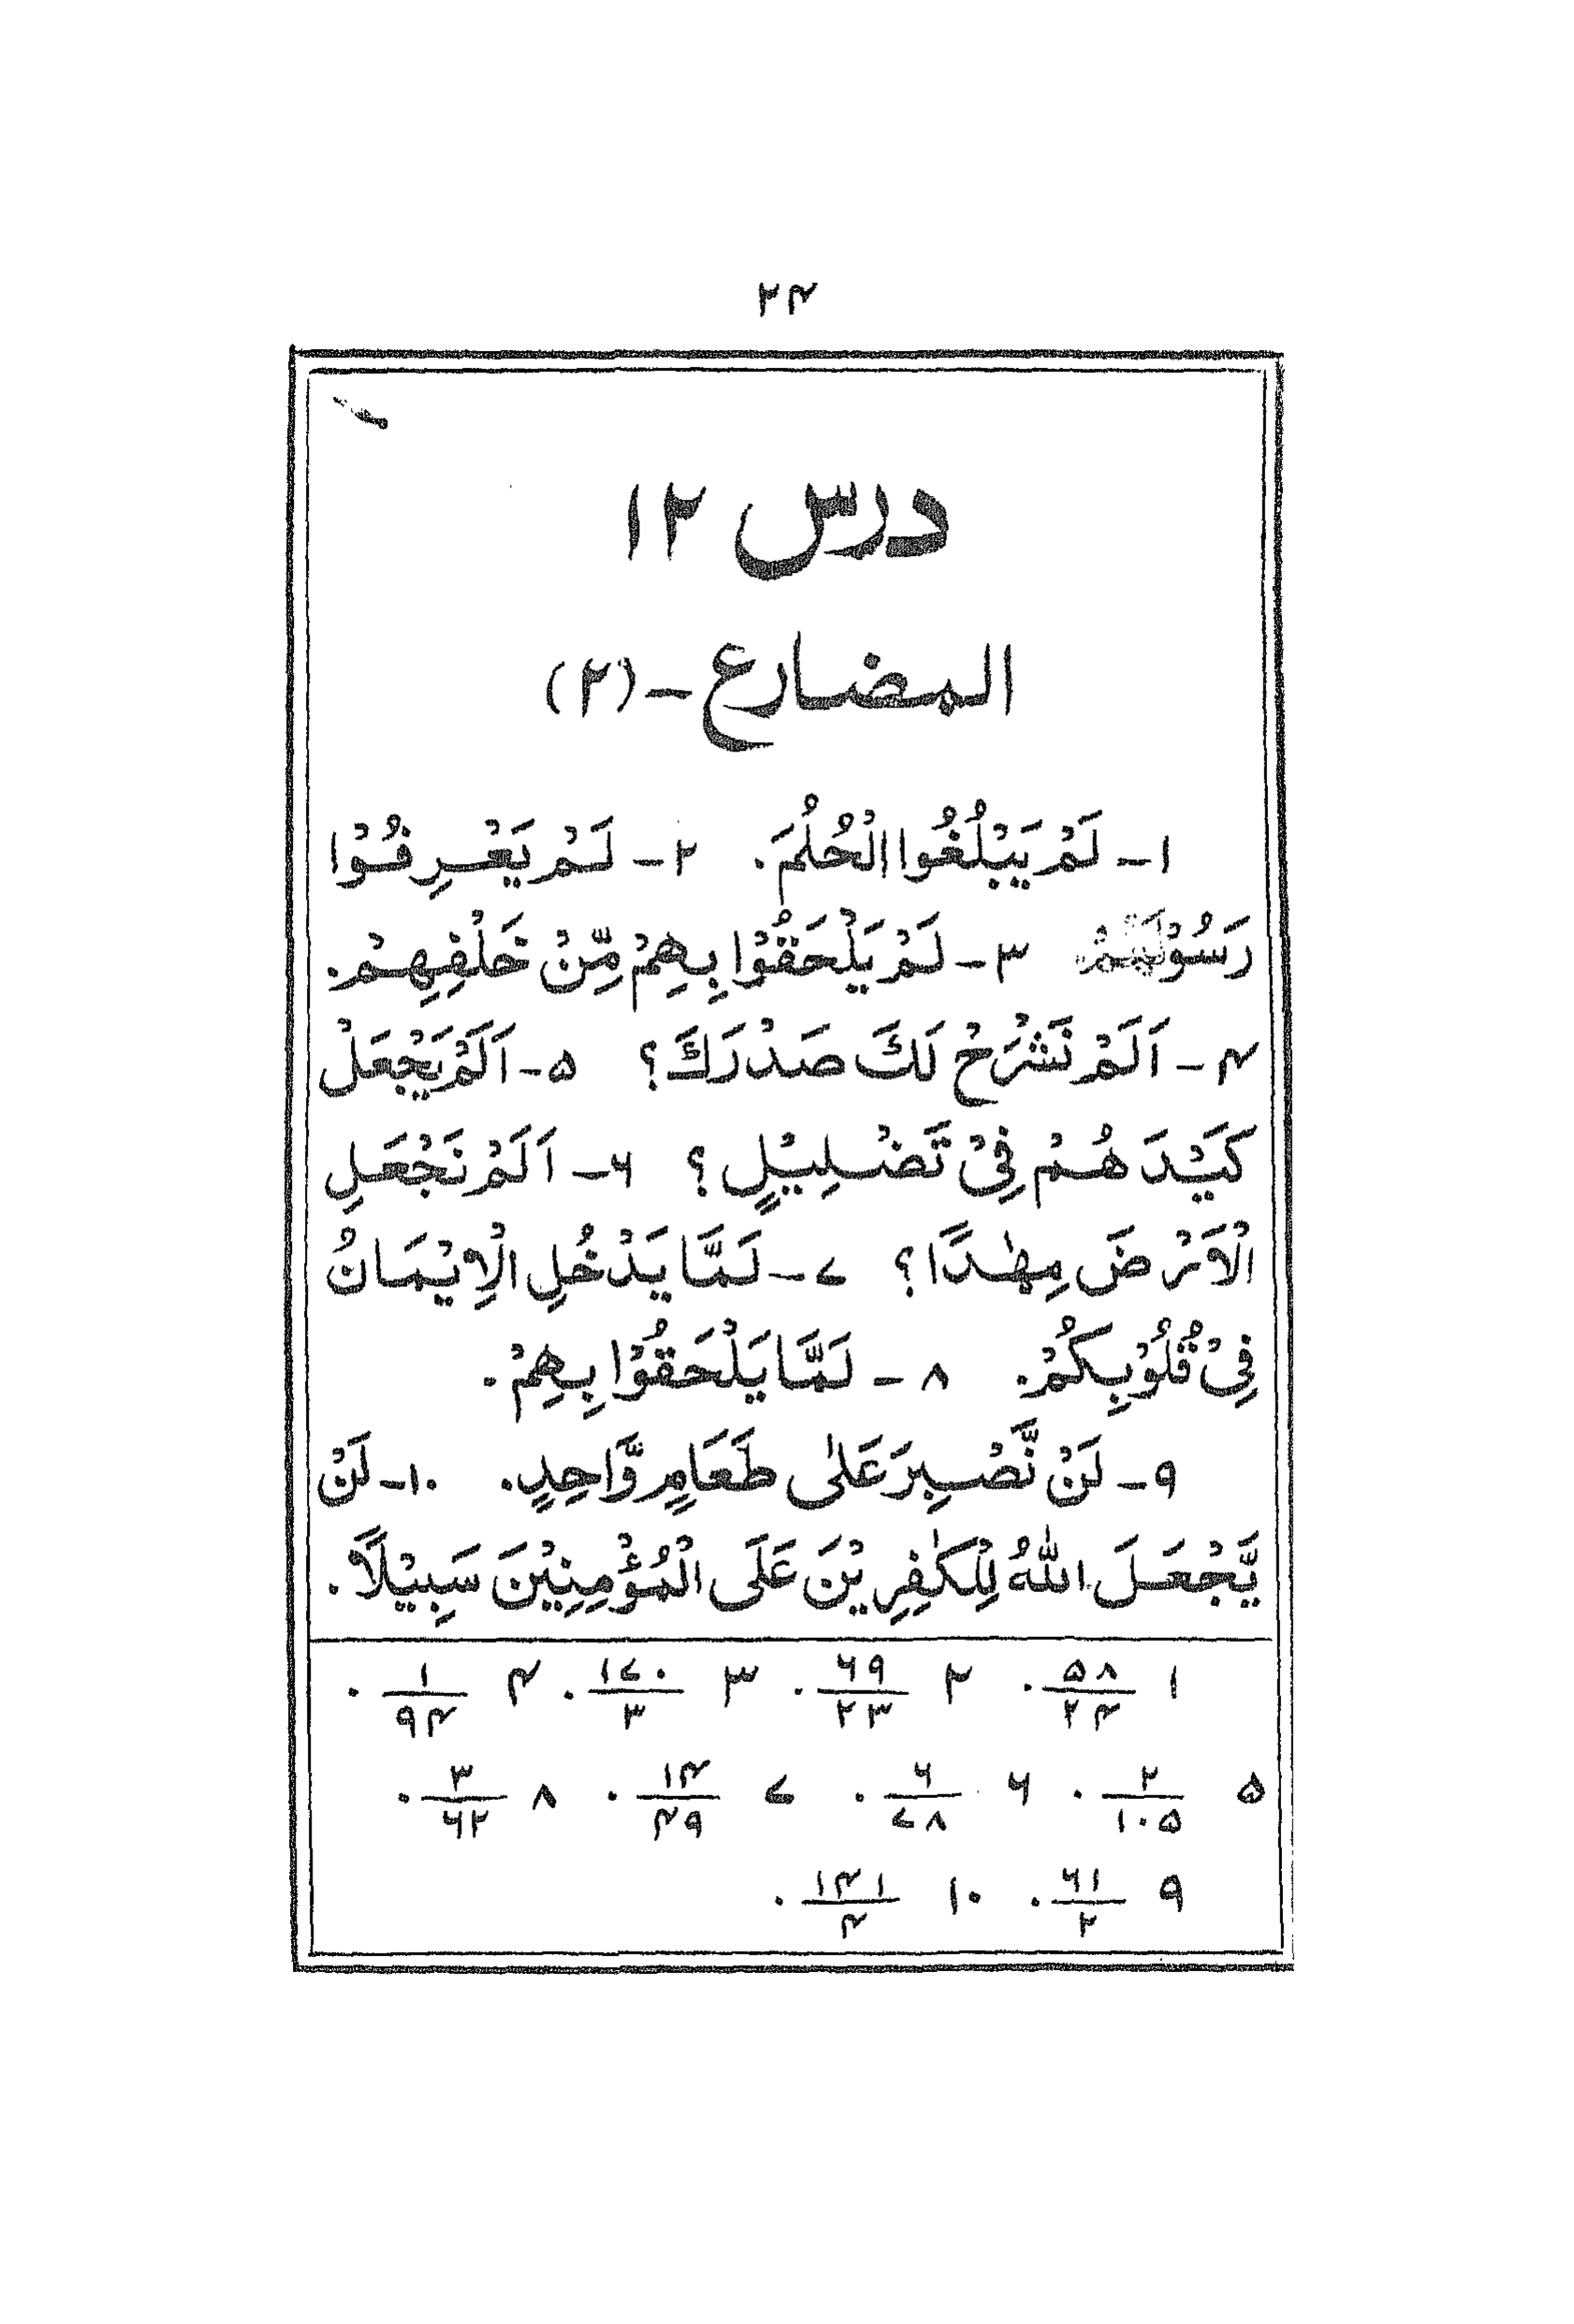 ۲۴
درس ۱۲
المضارع - (۲)
۱- لَمْ يَبْلُغُوا الْحُلُمَ. ۲- لَمْ يَعْرِفُوْا
رَسُوْلَهُمْ ۳- لَمْ يَلْحَقُوْا بِهِمْ مِّنْ خَلْفِهِمْ.
۴- اَلَمْ نَشْرَحْ لَكَ صَدْرَكَ؟ ۵- اَلَمْ يَجْعَلْ
كَيْدَهُمْ فِيْ تَضْلِيْلٍ؟ ۶- اَلَمْ نَجْعَلِ
الْاَرْضَ مِهٰدًا؟ ۷- لَمَّا يَدْخُلِ الْاِيْمَانُ
فِيْ قُلُوْبِكُمْ. ۸- لَمَّا يَلْحَقُوْا بِهِمْ.
۹- لَنْ نَّصْبِرَ عَلٰى طَعَامٍ وَّاحِدٍ. ۱۰- لَنْ
يَّجْعَلَ اللّٰهُ لِلْكٰفِرِيْنَ عَلَى الْمُؤْمِنِيْنَ سَبِيْلًا.
۱ ۵۸/۲۴. ۲ ۶۹/۲۳. ۳ ۱۷۰/۳. ۴ ۱/۹۴.
۵ ۲/۱۰۵. ۶ ۶/۷۸. ۷ ۱۴/۴۹. ۸ ۳/۶۲.
۹ ۶۱/۲. ۱۰ ۱۴۱/۴.